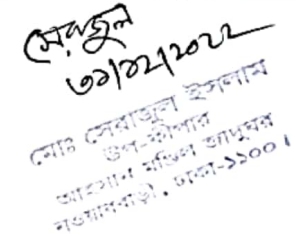 সেরাজুল
৩১/০১/২০২২
মোঃ সেরাজুল ইসলাম
উপ-কীপার
আহসান মঞ্জিল জাদুঘর
নওয়াববাড়ী, ঢাকা-১১০০।